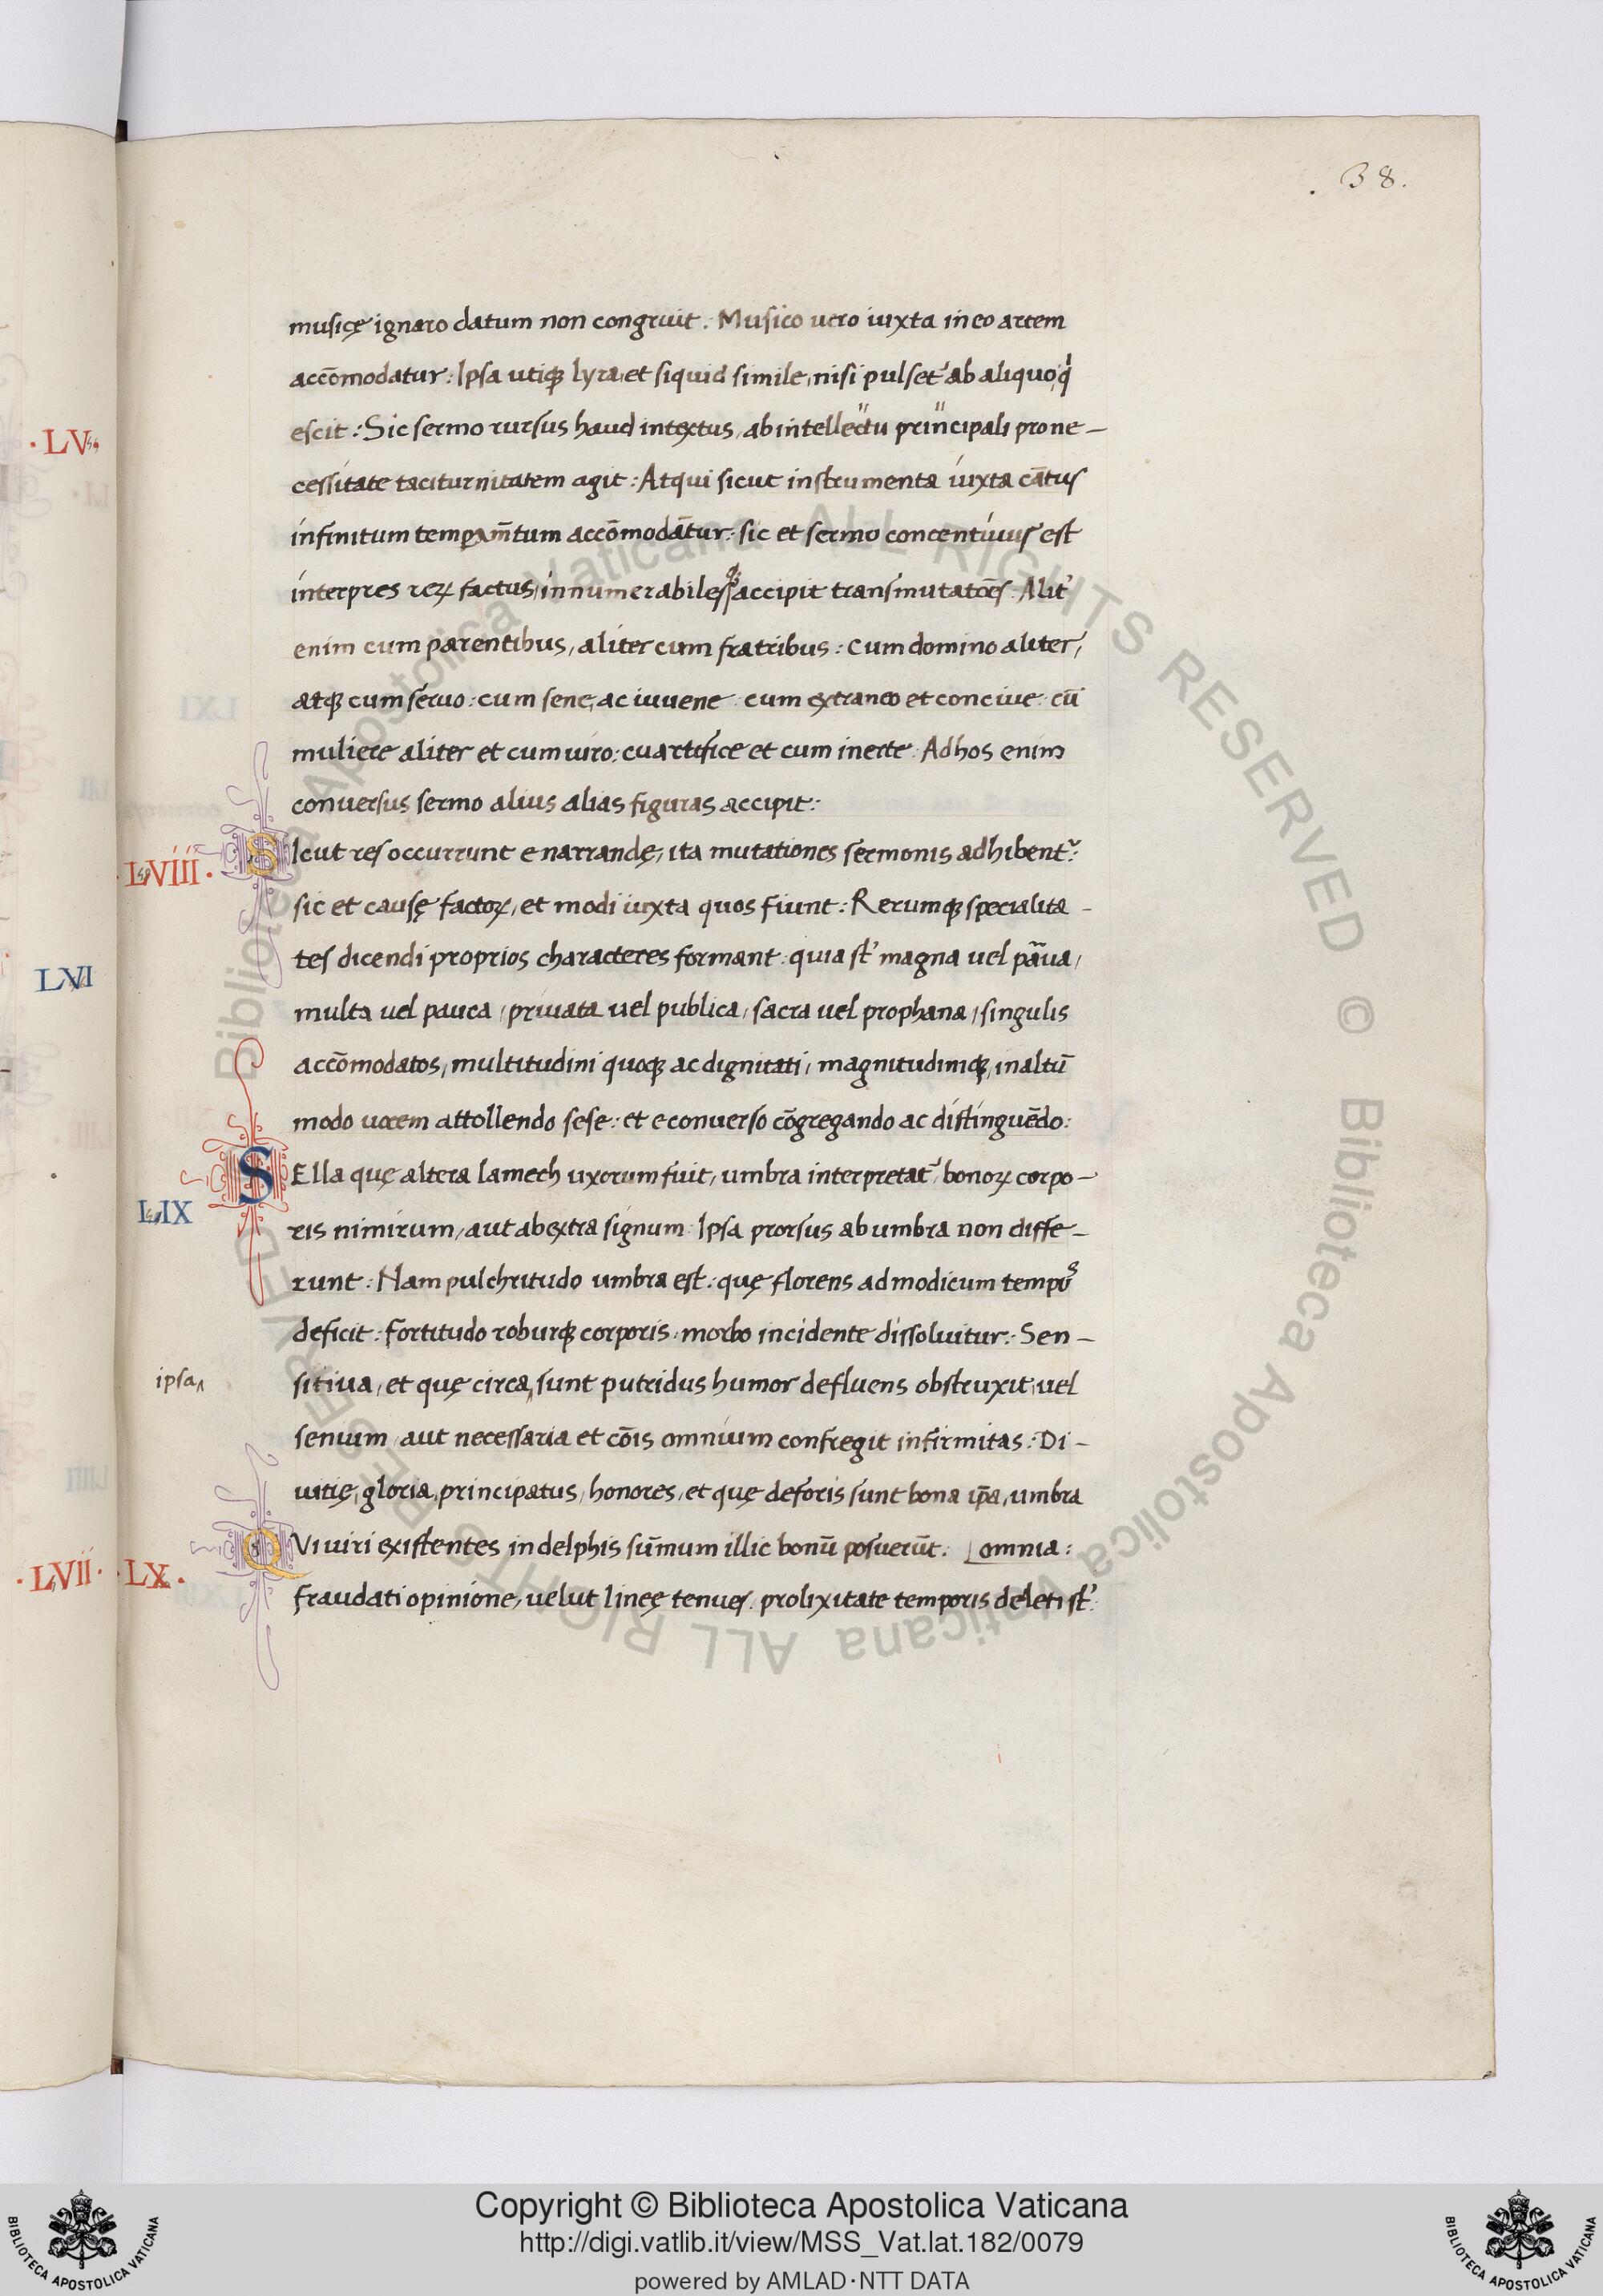 . 38.
musicę ignaro datum non congruit. Musico uero iuxta in eo artem
accōmodatur: Ipsa utiqꝫ lyra, et siquid simile, nisi pulset᾽ ab aliquo, q̇
escit: Sic sermo rursus haud intextus, ab intellectu principali pro ne–
cessitate taciturnitatem agit: Atqui sicut instrumenta iuxta cātus
infinitum temꝑam̄tum accōmodātur: sic et sermo concentiuus est
interpres reꝝ factus, innumerabilesqꝫ accipit transmutatōēs. Alit᾽
enim cum parentibus, aliter cum fratribus: cum domino aliter,
atqꝫ cum seruo: cum sene, ac iuuene: cum extraneo et conciue: cū
muliere aliter et cum uiro: cu artifice et cum inerte. Ad hos enim
conuersus sermo alius alias figuras accipit:
·LVIII·
SIcut res occurrunt enarrandę, ita mutationes sermonis adhibent᾽:
sic et causę factoꝝ, et modi iuxta quos fiunt: Rerumqꝫ specialita–
tes dicendi proprios characteres formant: quia st᾽ magna uel paͣua,
multa uel pauca, priuata uel publica, sacra uel prophana, singulis
accōmodatos, multitudini quoqꝫ ac dignitati, magnitudiniqꝫ, in altū
modo uocem attollendo sese: et e conuerso cōgregando ac distinguēdo:
LIX
SElla quę altera lamech uxorum fuit, umbra interpretat᾽, bonoꝝ corpo–
ris nimirum, aut ab extra signum. Ipsa prorsus ab umbra non diffe–
runt: Nam pulchritudo umbra est: quę florens ad modicum tempus
deficit: fortitudo roburqꝫ corporis, morbo incidente dissoluitur: Sen–
ipsa‸
sitiua, et quę circa‸ sunt putridus humor defluens obstruxit, uel
senium, aut necessaria et cōis omnium confregit infirmitas: Di–
uitię, gloria, principatus, honores, et quę deforis sunt bona ip̄a, umbra
·LVII·
LX.
QVi uiri existentes in delphis sūmum illic bonū posuerūt. [omnia:
fraudati opinione, uelut linęę tenues, prolixitate temporis deleti st᾽:
·LV
LVI
Biblioteca Apostolica Vaticana ALL RIGHTS RESERVED © Biblioteca Apostolica Vaticana ALL RIGHTS RESERVED
Copyright © Biblioteca Apostolica Vaticana
http://digi.vatlib.it/view/MSS_Vat.lat.182/0079
powered by AMLAD·NTT DATA
BIBLIOTECA APOSTOLICA VATICANA
BIBLIOTECA APOSTOLICA VATICANA